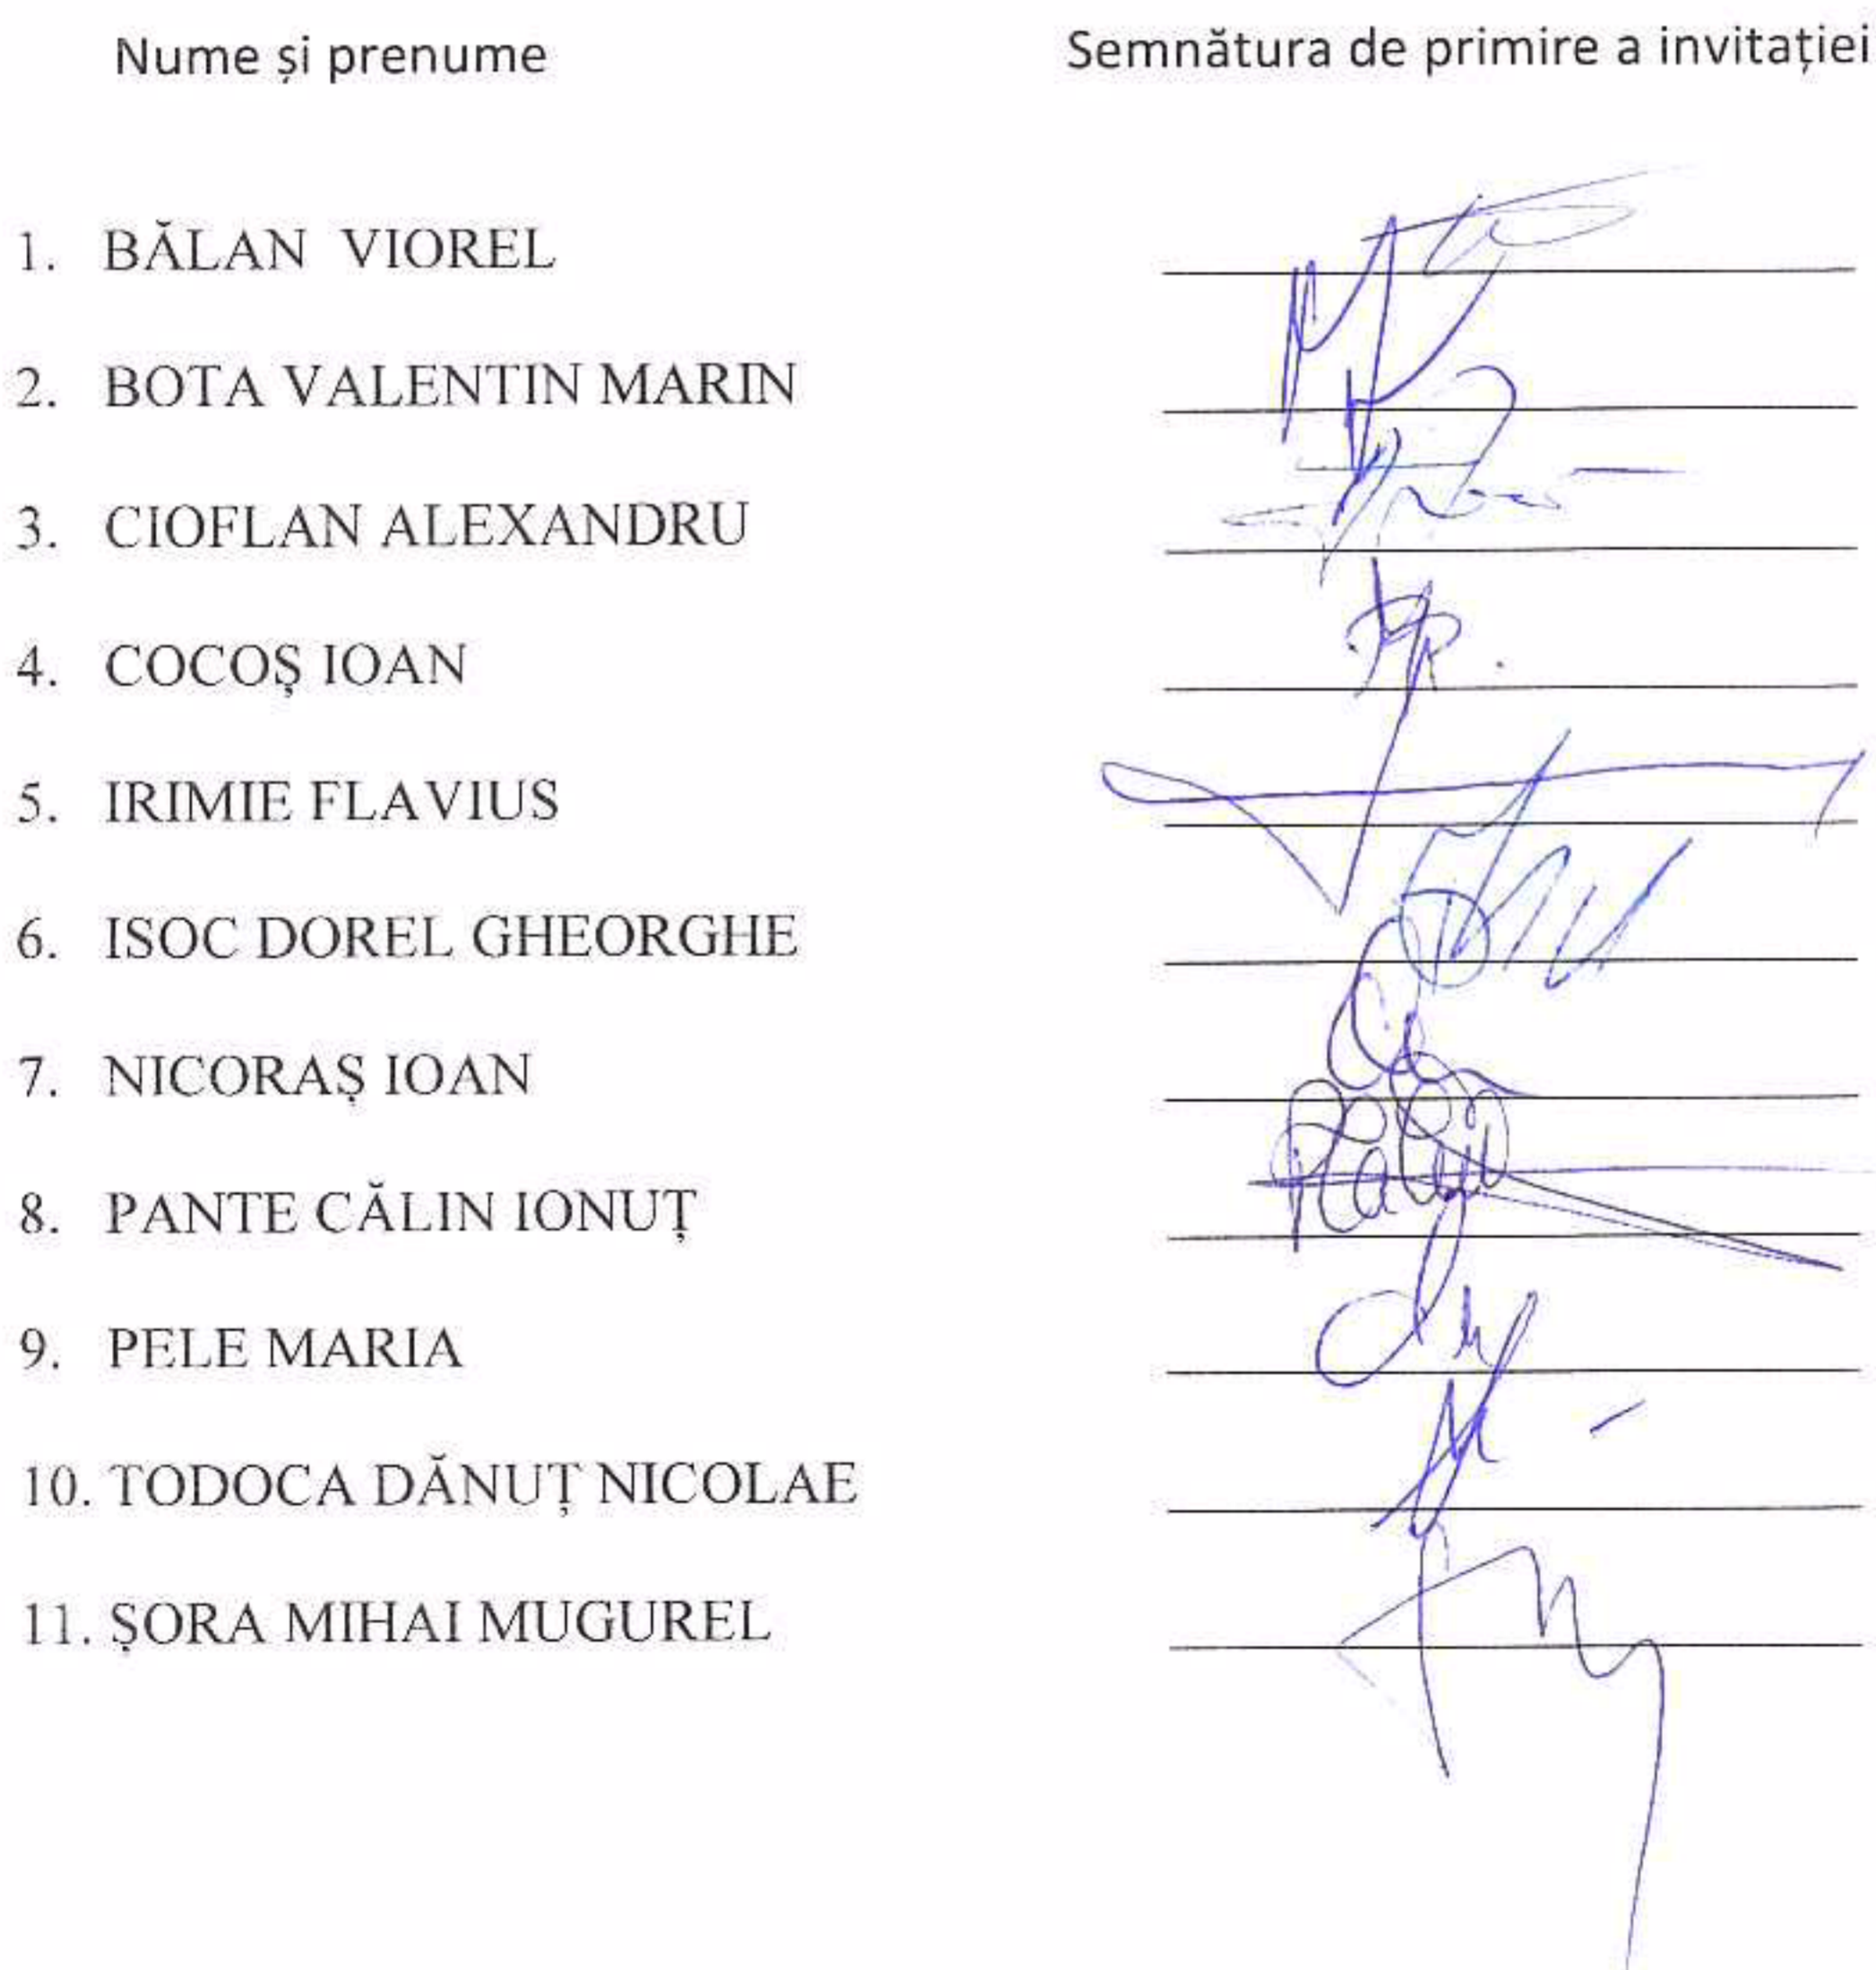 Nume și prenume Semnătura de primire a invitației
1. BĂLAN VIOREL
2. BOTA VALENTIN MARIN
3. CIOFLAN ALEXANDRU
4. COCOȘ IOAN
5. IRIMIE FLAVIUS
6. ISOC DOREL GHEORGHE
7. NICORAȘ IOAN
8. PANTE CĂLIN IONUȚ
9. PELE MARIA
10. TODOCA DĂNUȚ NICOLAE
11. ȘORA MIHAI MUGUREL